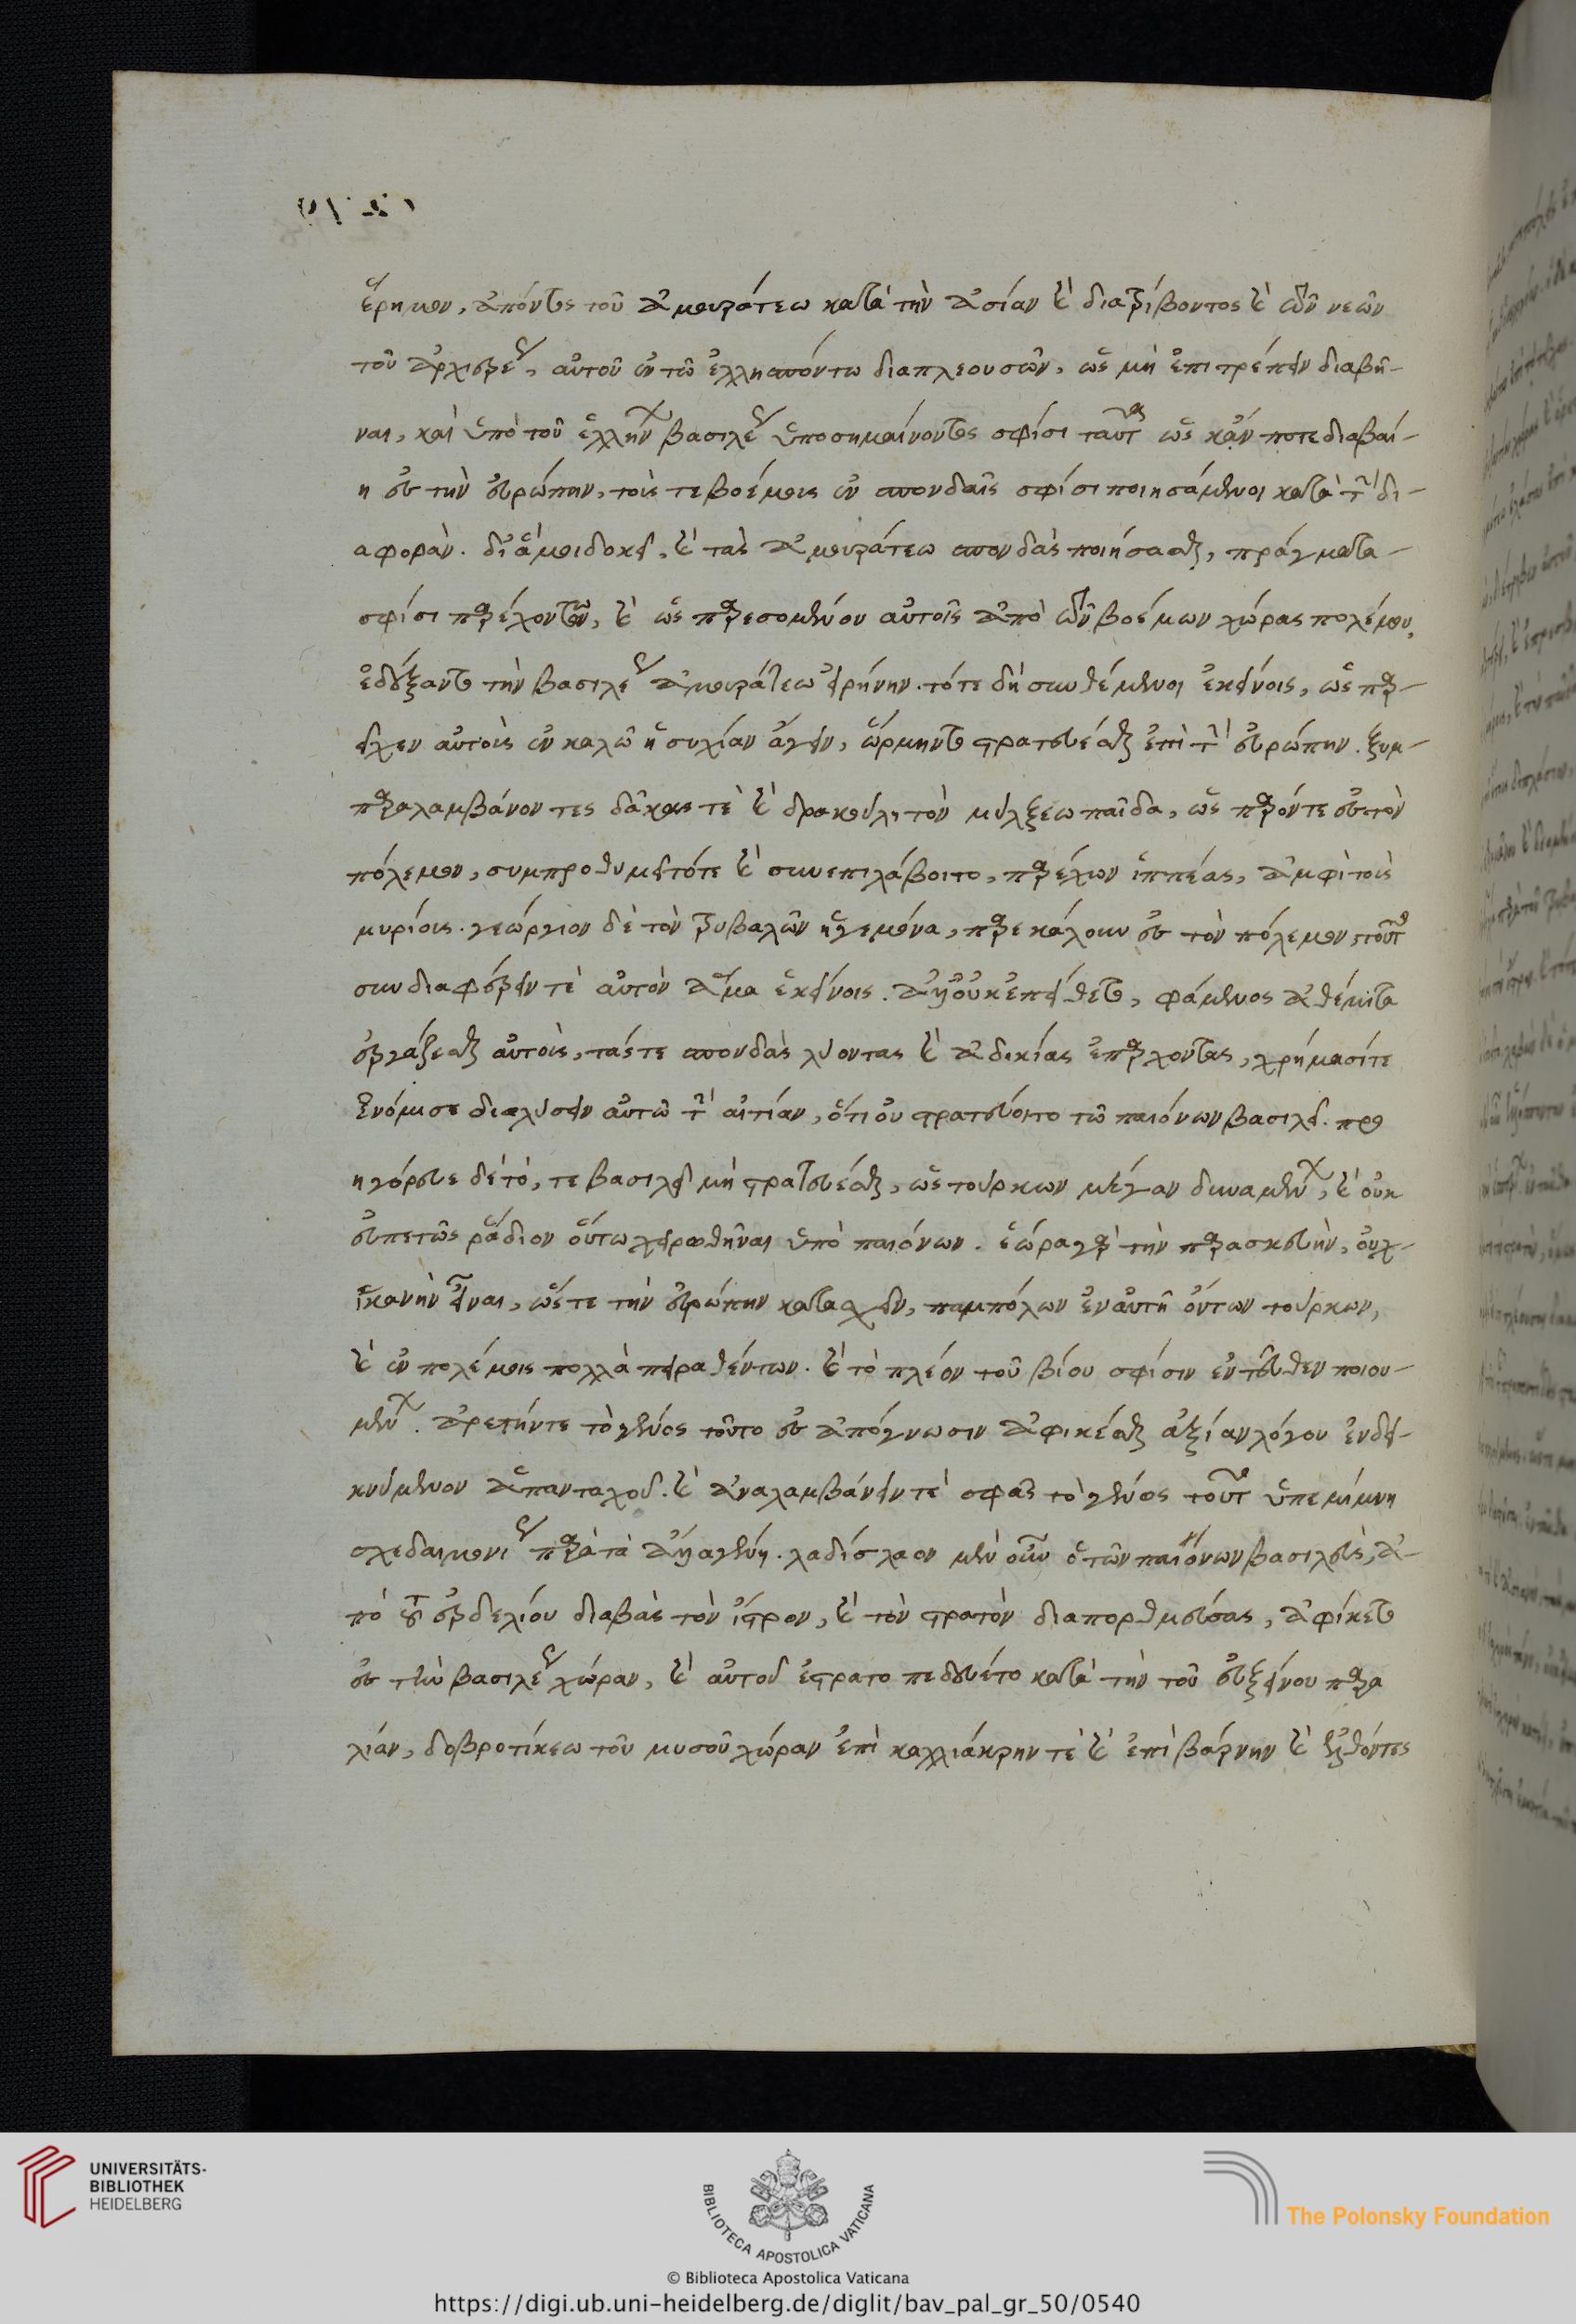 ἔρημον, ἀπόντος τοῦ ἀμουράτεω κατὰ τὴν ἀσίαν καὶ διατρίβοντος καὶ τῶν νεῶν
τοῦ ἀρχιερέως, αὐτοῦ ἐν τῶ ἑλλησπόντω διαπλεουσῶν, ὡς μὴ ἐπιτρέπειν διαβῆ-
ναι, καὶ ὑπὸ τοῦ ἑλλήνων βασιλέως ὑποσημαίνοντος σφίσι ταῦτα ὡς κἄν ποτε διαβαί-
η ἐς τὴν εὐρώπην, τοῖς τε βοέμοις ἐν σπονδαῖς σφίσι ποιησάμενοι κατὰ τὴν δι-
αφοράν. δι' ἅ μοι δοκεῖ, καὶ τὰς ἀμουράτεω σπονδὰς ποιήσασθαι, πράγματα-
σφίσι παρέχοντων, καὶ ὡς παρεσομένου αὐτοῖς ἀπὸ τῶν βοέμων χώρας πολέμου,
ἐδέξαντο τὴν βασιλέως ἀμουράτεω εἰρήνην. τότε δὴ συνθέμενοι ἐκείνοις, ὡς παρ-
εῖχεν αὐτοῖς ἐν καλῶ ἡσυχίαν ἄγειν, ὥρμηντο στρατεύεσθαι ἐπὶ τὴν εὐρώπην. ξυμ-
παραλαμβάνοντες δᾶκας τὲ καὶ δρακούλη τὸν μύλξεω παῖδα, ὡς παρόντε ἐς τὸν
πόλεμον, συμπροθυμεῖτό τε καὶ συνεπιλάβοιτο, παρέχων ἱππέας, ἀμφὶ τοὺς
μυρίους. γεώργιον δὲ τὸν τριβαλῶν ἡγεμόνα, παρεκάλουν ἐς τὸν πόλεμον τοῦτον
συνδιαφέρειν τὲ αὐτὸν ἅμα ἐκείνοις. ἀλλ' οὐκ ἐπείθετο, φάμενος ἀθέμιτα
ἐργάζεσθαι αὐτοὺς, τάς τε σπονδὰς λύοντας καὶ ἀδικίας ἐπάρχοντας, χρήμασί τε
ἐνόμισε διαλύσειν αὐτῶ τὴν αἰτίαν, ὅτι οὐ στρατεύοιτο τῶ παιόνων βασιλεῖ. προ
ηγόρευε δὲ τό, τε βασιλεῖ μὴ στρατεύεσθαι, ὡς τούρκων μέγαν δυναμένων, καὶ οὐκ
εὐπετῶς ῥάδιον οὕτω χειρωθῆναι ὑπὸ παιόνων. ἑώρα γὰρ τὴν παρασκευὴν, οὐχ-
ἱκανὴν εἶναι, ὥστε τὴν εὐρώπην κατασχεῖν, παμπόλων ἐν αὐτῆ ὄντων τούρκων,
καὶ ἐν πολέμοις πολλὰ πειραθέντων. καὶ τὸ πλέον τοῦ βίου σφίσιν ἐντεῦθεν ποιου-
μένων. ἀρετήν τε τὸ γένος τοῦτο ἐς ἀπόγνωσιν ἀφικέσθαι ἀξίαν λόγου ἐνδει-
κνύμενον ἁπανταχοῦ. καὶ ἀναλαμβάνειν τὲ σφᾶς τὸ γένος τοῦτο ὑπεμίμνη
σχεδαιμονίως παρὰ τὰ ἄλλα γένη. λαδίσλαον μὲν οὖν ὁ τῶν παιόνων βασιλεὺς, ἀ-
πὸ τοῦ ἐρδελίου διαβὰς τὸν ἴστρον, καὶ τὸν στρατὸν διαπορθμεύσας, ἀφίκετο
ἐς τὴν βασιλέως χώραν, καὶ αὐτοῦ ἐστρατοπεδεύετο κατὰ τὴν τοῦ εὐξείνου παρα
λίαν, δοβροτίκεω τοῦ μυσοῦ χώραν ἐπὶ καλλιάκρην τὲ καὶ ἐπὶ βάρνην καὶ ἐλθόντες
UNIVERSITÄTS-
BIBLIOTHEK
HEIDELBERG
BIBLIOTECA APOSTOLICA VATICANA
The Polonsky Foundation
© Biblioteca Apostolica Vaticana
https://digi.ub.uni-heidelberg.de/diglit/bav_pal_gr_50/0540